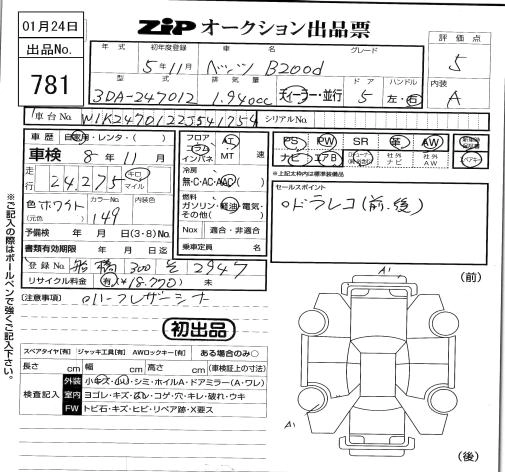 01月24日
ZIP オークション出品票
出品No.
781
評価点
5
内装
A
年式 初年度登録 車名 グレード
5年11月 ベンツ B200d
型式 排気量 ドア ハンドル
3DA-247012 1.94occ ディーラー・並行 5 左・右
車台No. W1K2470122J541754 シリアルNo.
車歴 自家用・レンタ・( )
車検 8年11月
走行 24,275 キロ マイル
色 ホワイト カラーNo. 149 内装色
(元色)
予備検 年 月 日(3・8)No.
書類有効期限 年 月 日迄
登録No. 船橋 300 2947
リサイクル料金 有(¥18,770) 未
フロア コラム インパネ AT MT 速
冷房
無・C・AC・AAC( )
燃料
ガソリン・軽油・電気・
その他( )
Nox 適合・非適合
乗車定員 名
PS PW SR 革 AW
ナビ エアB 社外ナビ 社外AW
※上記太枠内は標準装備品
セールスポイント
○ドラレコ(前、後)
(注意事項) ○ハーフレザーシート
初出品
スペアタイヤ[有] ジャッキ工具[有] AWロックキー[有] ある場合のみ○
長さ cm 幅 cm 高さ cm (車検証上の寸法)
検査記入
外装 小キズ・小凹・シミ・ホイルA・ドアミラー(A・ワレ)
室内 ヨゴレ・キズ・スレ・コゲ・穴・キレ・破れ・ウキ
FW トビ石・キズ・ヒビ・リペア跡・X要ス
※ご記入の際はボールペンで強くご記入下さい。
(前)
A1
A1
(後)